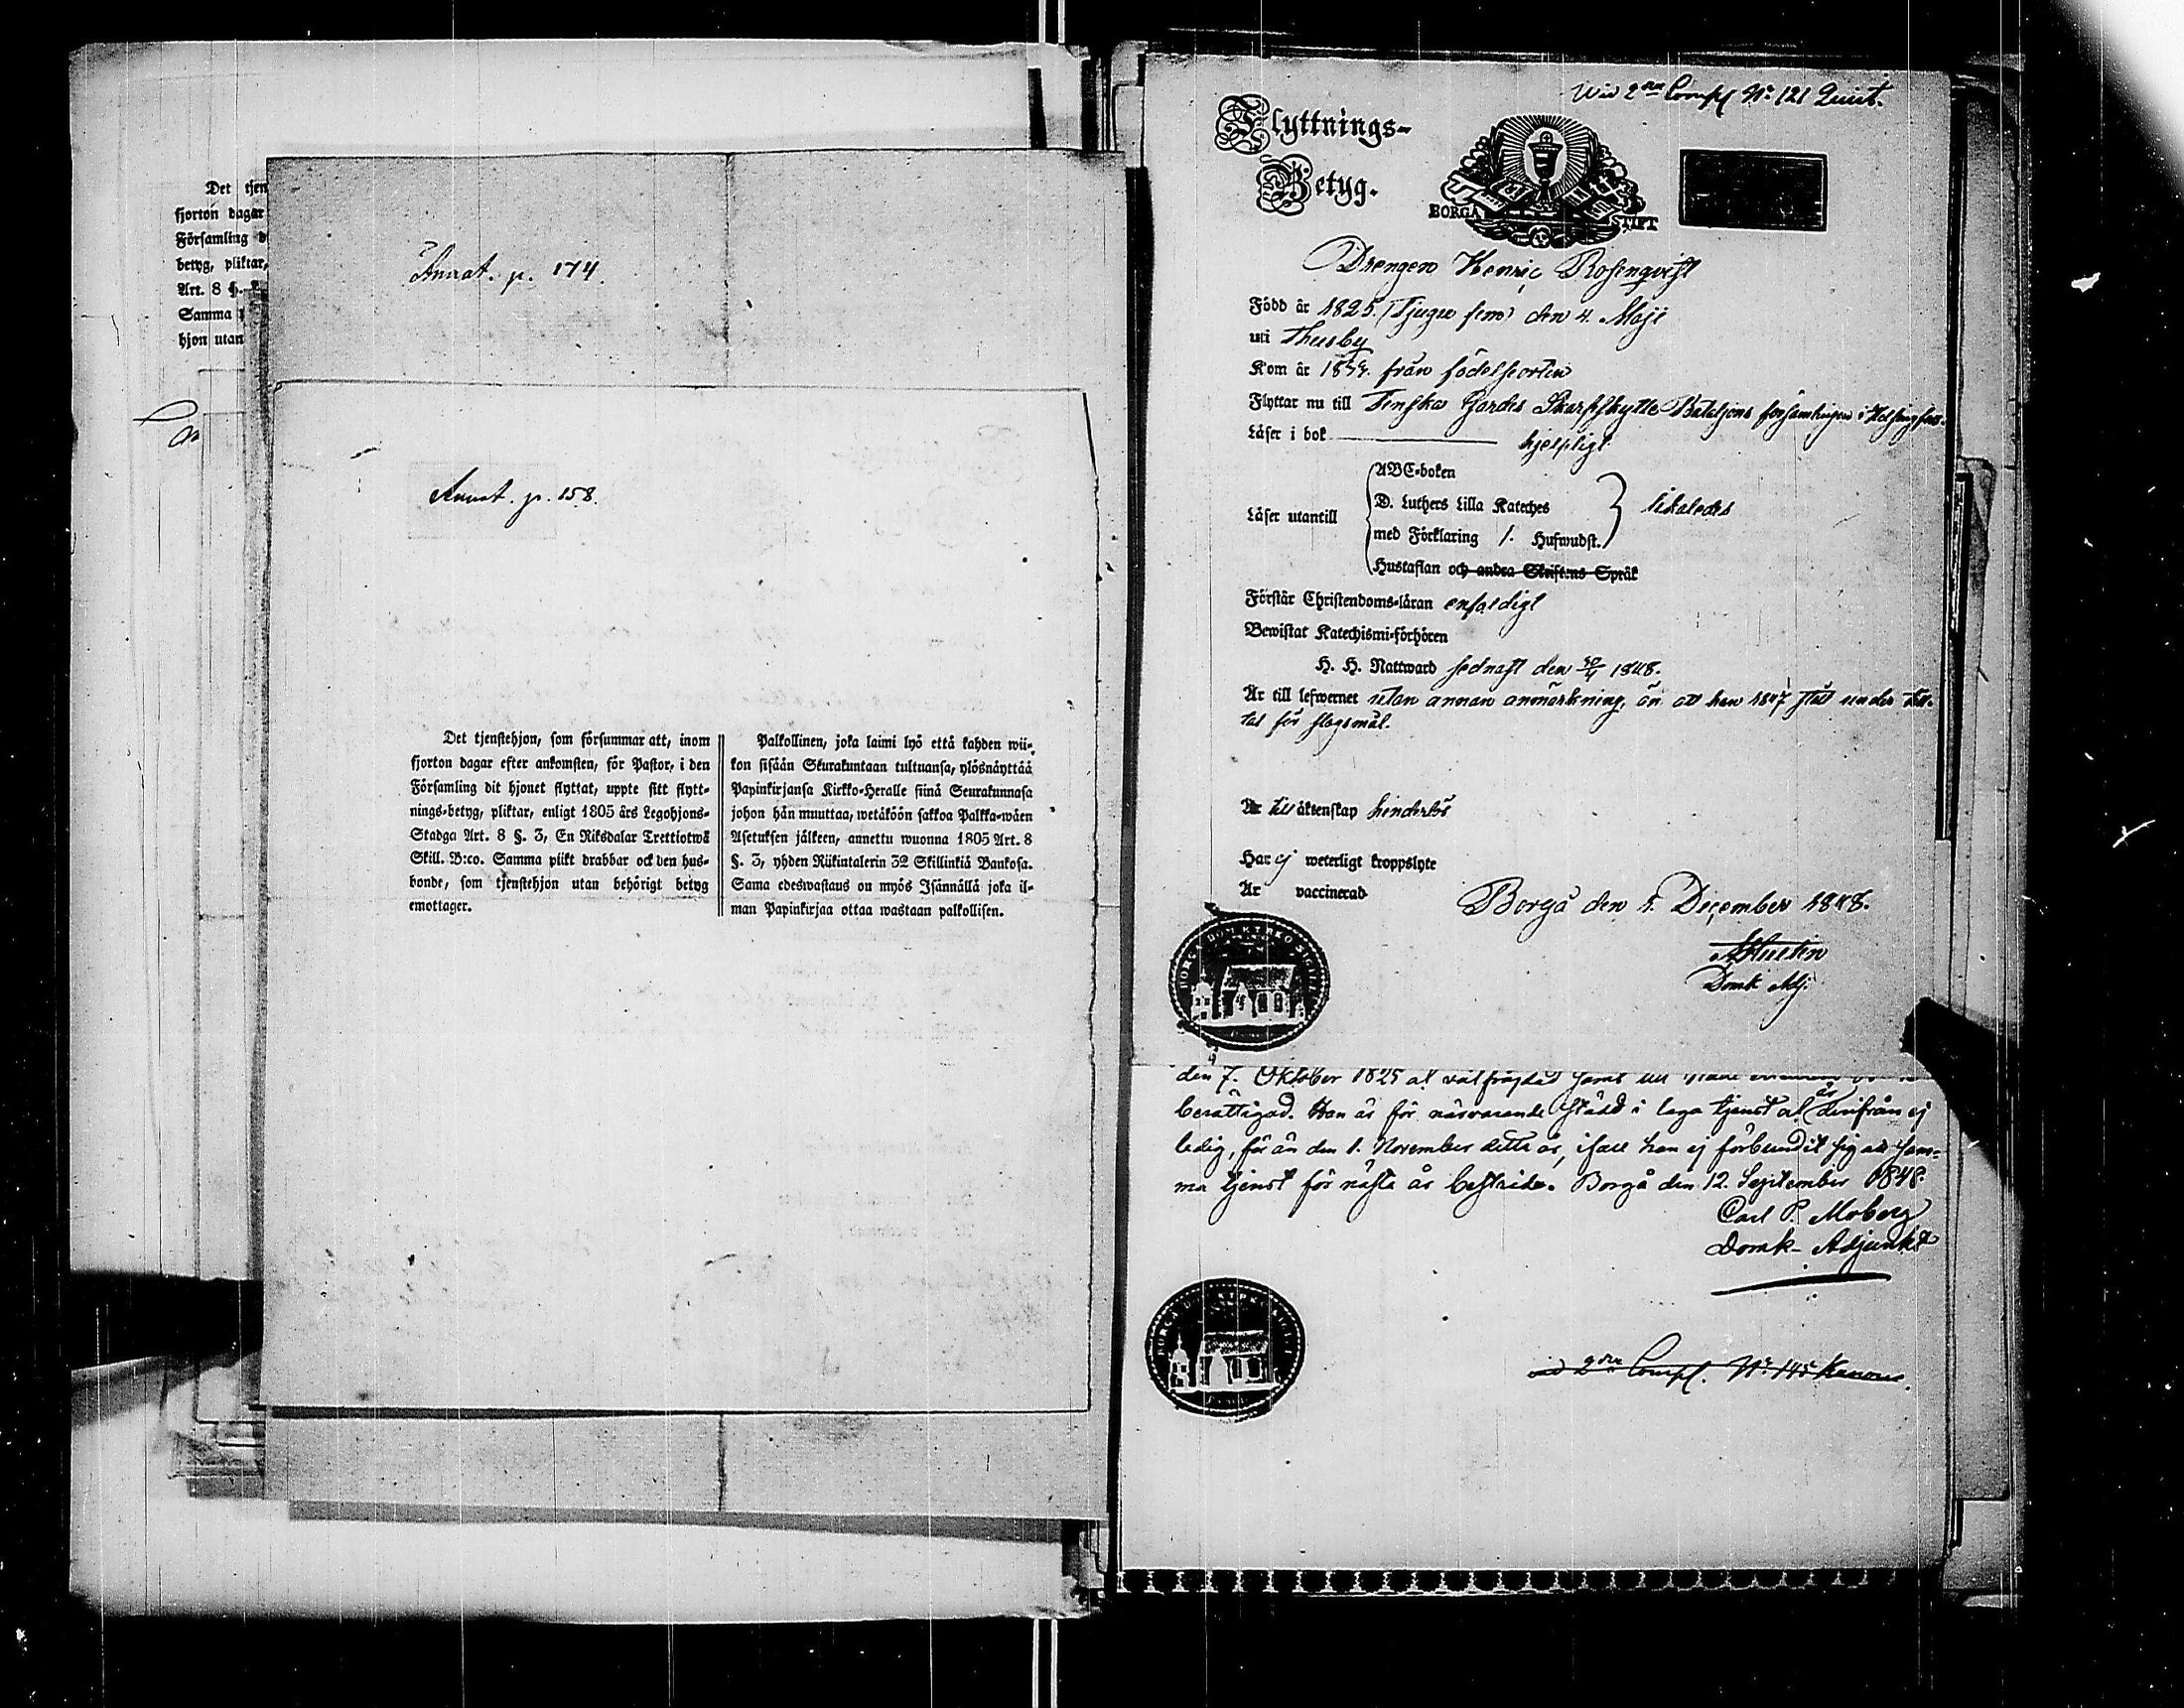 Det tjen
fjorton dagar
Församling d
betyg, pliktar,
Art. 8 §.
Samma
hjon utan
Annat. p. 174.
Annat. p. 158.
Det tjenstehjon, som försummar att, inom
fjorton dagar efter ankomsten, för Pastor, i den
Församling dit hjonet flyttat, uppte sitt flytt-
nings-betyg, pliktar, enligt 1805 års Legohjons-
Stadga Art. 8 §. 3, En Riksdalar Trettiotwå
Skill. B:co. Samma plikt drabbar ock den hus-
bonde, som tjenstehjon utan behörigt betyg
emottager.
Palkollinen, joka laimi lyö että kahden wii-
kon sisään Seurakuntaan tultuansa, ylösnäyttää
Papinkirjansa Kirkko-Heralle siinä Seurakunnasa
johon hän muuttaa, wetäköön sakkoa Palkka-wäen
Asetuksen jälkeen, annettu wuonna 1805 Art. 8
§. 3, yhden Riikintalerin 32 Skillinkiä Bankosa.
Sama edeswastaus on myös Isännällä joka il-
man Papinkirjaa ottaa wastaan palkollisen.
Wid 2dra Compl N:o 121 Quist.
Flyttnings-
Betyg.
BORGÅ STIFT
Drengen Henric Rosenqvist
Född år 1825. (Tjugu fem) den 4. Maji
uti Thusby
Kom år 1844. från födelseorten
Flyttar nu till Finska Gardes Skarpskytte Bataljons församlingen i Helsingfors.
Läser i bok hjelpligt
Läser utantill
ABC-boken
D. Luthers Lilla Kateches
med Förklaring 1. Hufwudst.
Hustaflan och andra Skriftens Språk
likaledes
Förstår Christendoms-läran enfaldigt
Bewistat Katechismi-förhören
H. H. Nattward sednast den 30/4 1848.
Är till lefwernet utan annan anmärkning, än att han 1847 stått under till-
tal för slagsmål.
Är till äktenskap hinderlös
Har ej weterligt kroppslyte
Är vaccinerad
Borgå den 1. December 1848.
Domk Adj.
den 7. Oktober 1825 at välfrägdad samt till
berättigad. Han är för närvarande städd i laga tjenst at är derifrån ej
ledig, för än den 1. November detta år, ifall han ej förbundit sig att sam-
ma tjenst för nästa år bestrida. Borgå den 12. September 1848.
Carl P. Moberg
Domk-Adjunkt
wid 2dra Compl. N:o 145 Kanone.